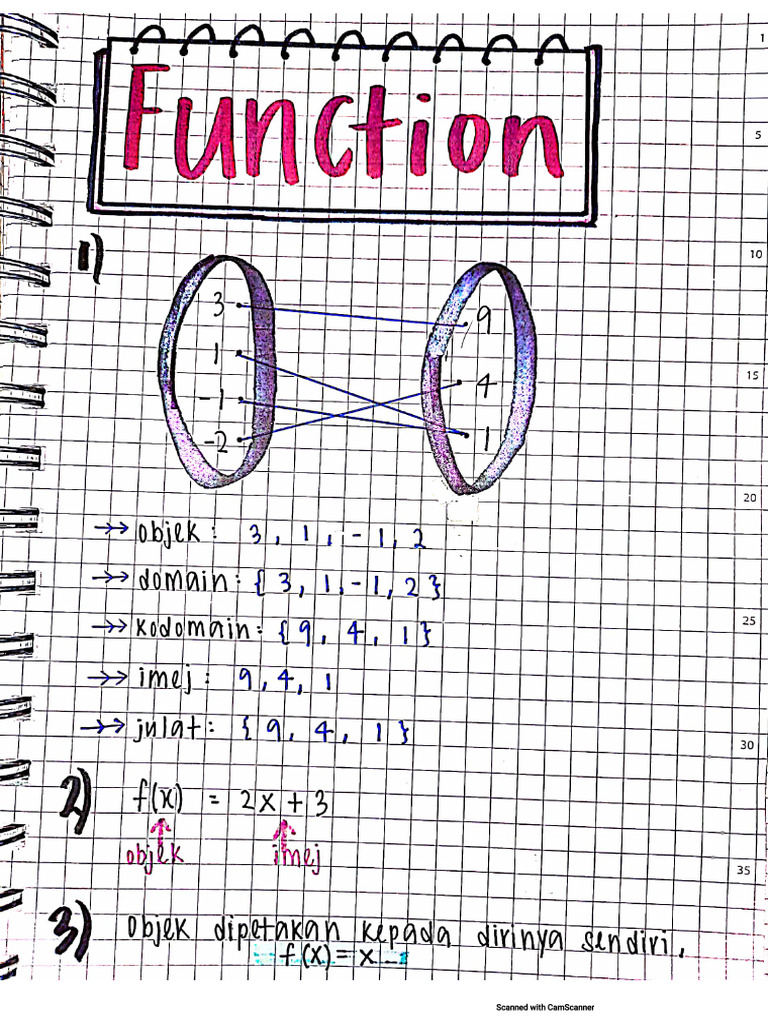 Function
1)
3
1
-1
-2
9
4
1
→→ objek: 3, 1, -1, 2
→→ domain: {3, 1, -1, 2}
→→ kodomain: {9, 4, 1}
→→ imej: 9, 4, 1
→→ julat: {9, 4, 1}
2) f(x) = 2x + 3
objek imej
3) Objek dipetakan kepada dirinya sendiri.
f(x) = x
1
5
10
15
20
25
30
35
Scanned with CamScanner